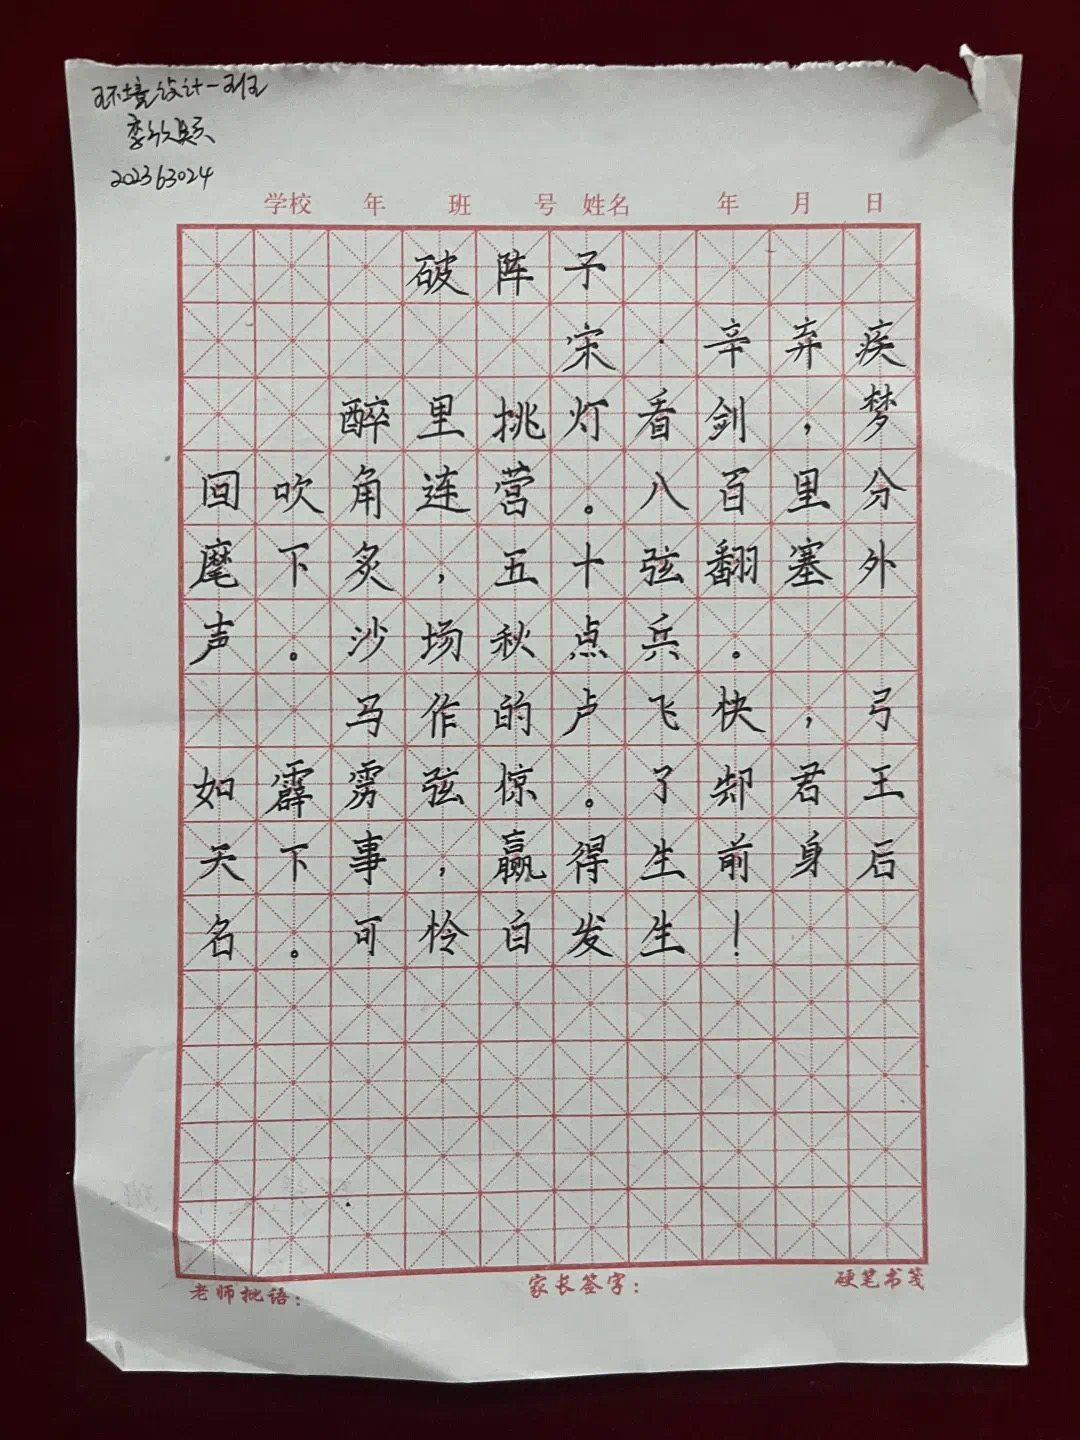 环境设计一班
李欣颢
202363024
学校 年 班 号 姓名 年 月 日
破阵子
宋·辛弃疾
醉里挑灯看剑，梦
回吹角连营。八百里分
麾下炙，五十弦翻塞外
声。沙场秋点兵。
马作的卢飞快，弓
如霹雳弦惊。了却君王
天下事，赢得生前身后
名。可怜白发生！
老师批语： 家长签字： 硬笔书笺